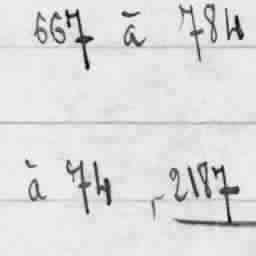 667 à 784
à 74, 2187